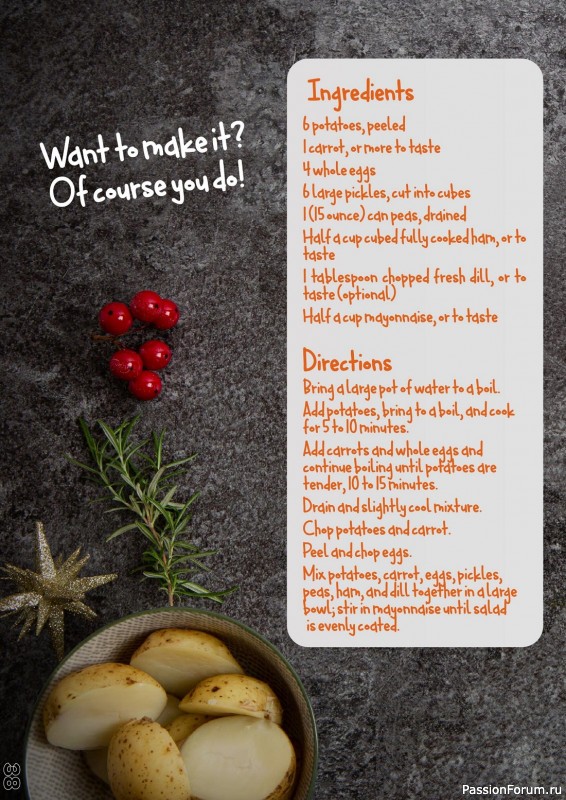 Want to make it?
Of course you do!
Ingredients
6 potatoes, peeled
1 carrot, or more to taste
4 whole eggs
6 large pickles, cut into cubes
1 (15 ounce) can peas, drained
Half a cup cubed fully cooked ham, or to
taste
1 tablespoon chopped fresh dill, or to
taste (optional)
Half a cup mayonnaise, or to taste
Directions
Bring a large pot of water to a boil.
Add potatoes, bring to a boil, and cook
for 5 to 10 minutes.
Add carrots and whole eggs and
continue boiling until potatoes are
tender, 10 to 15 minutes.
Drain and slightly cool mixture.
Chop potatoes and carrot.
Peel and chop eggs.
Mix potatoes, carrot, eggs, pickles,
peas, ham, and dill together in a large
bowl; stir in mayonnaise until salad
is evenly coated.
38
PassionForum.ru